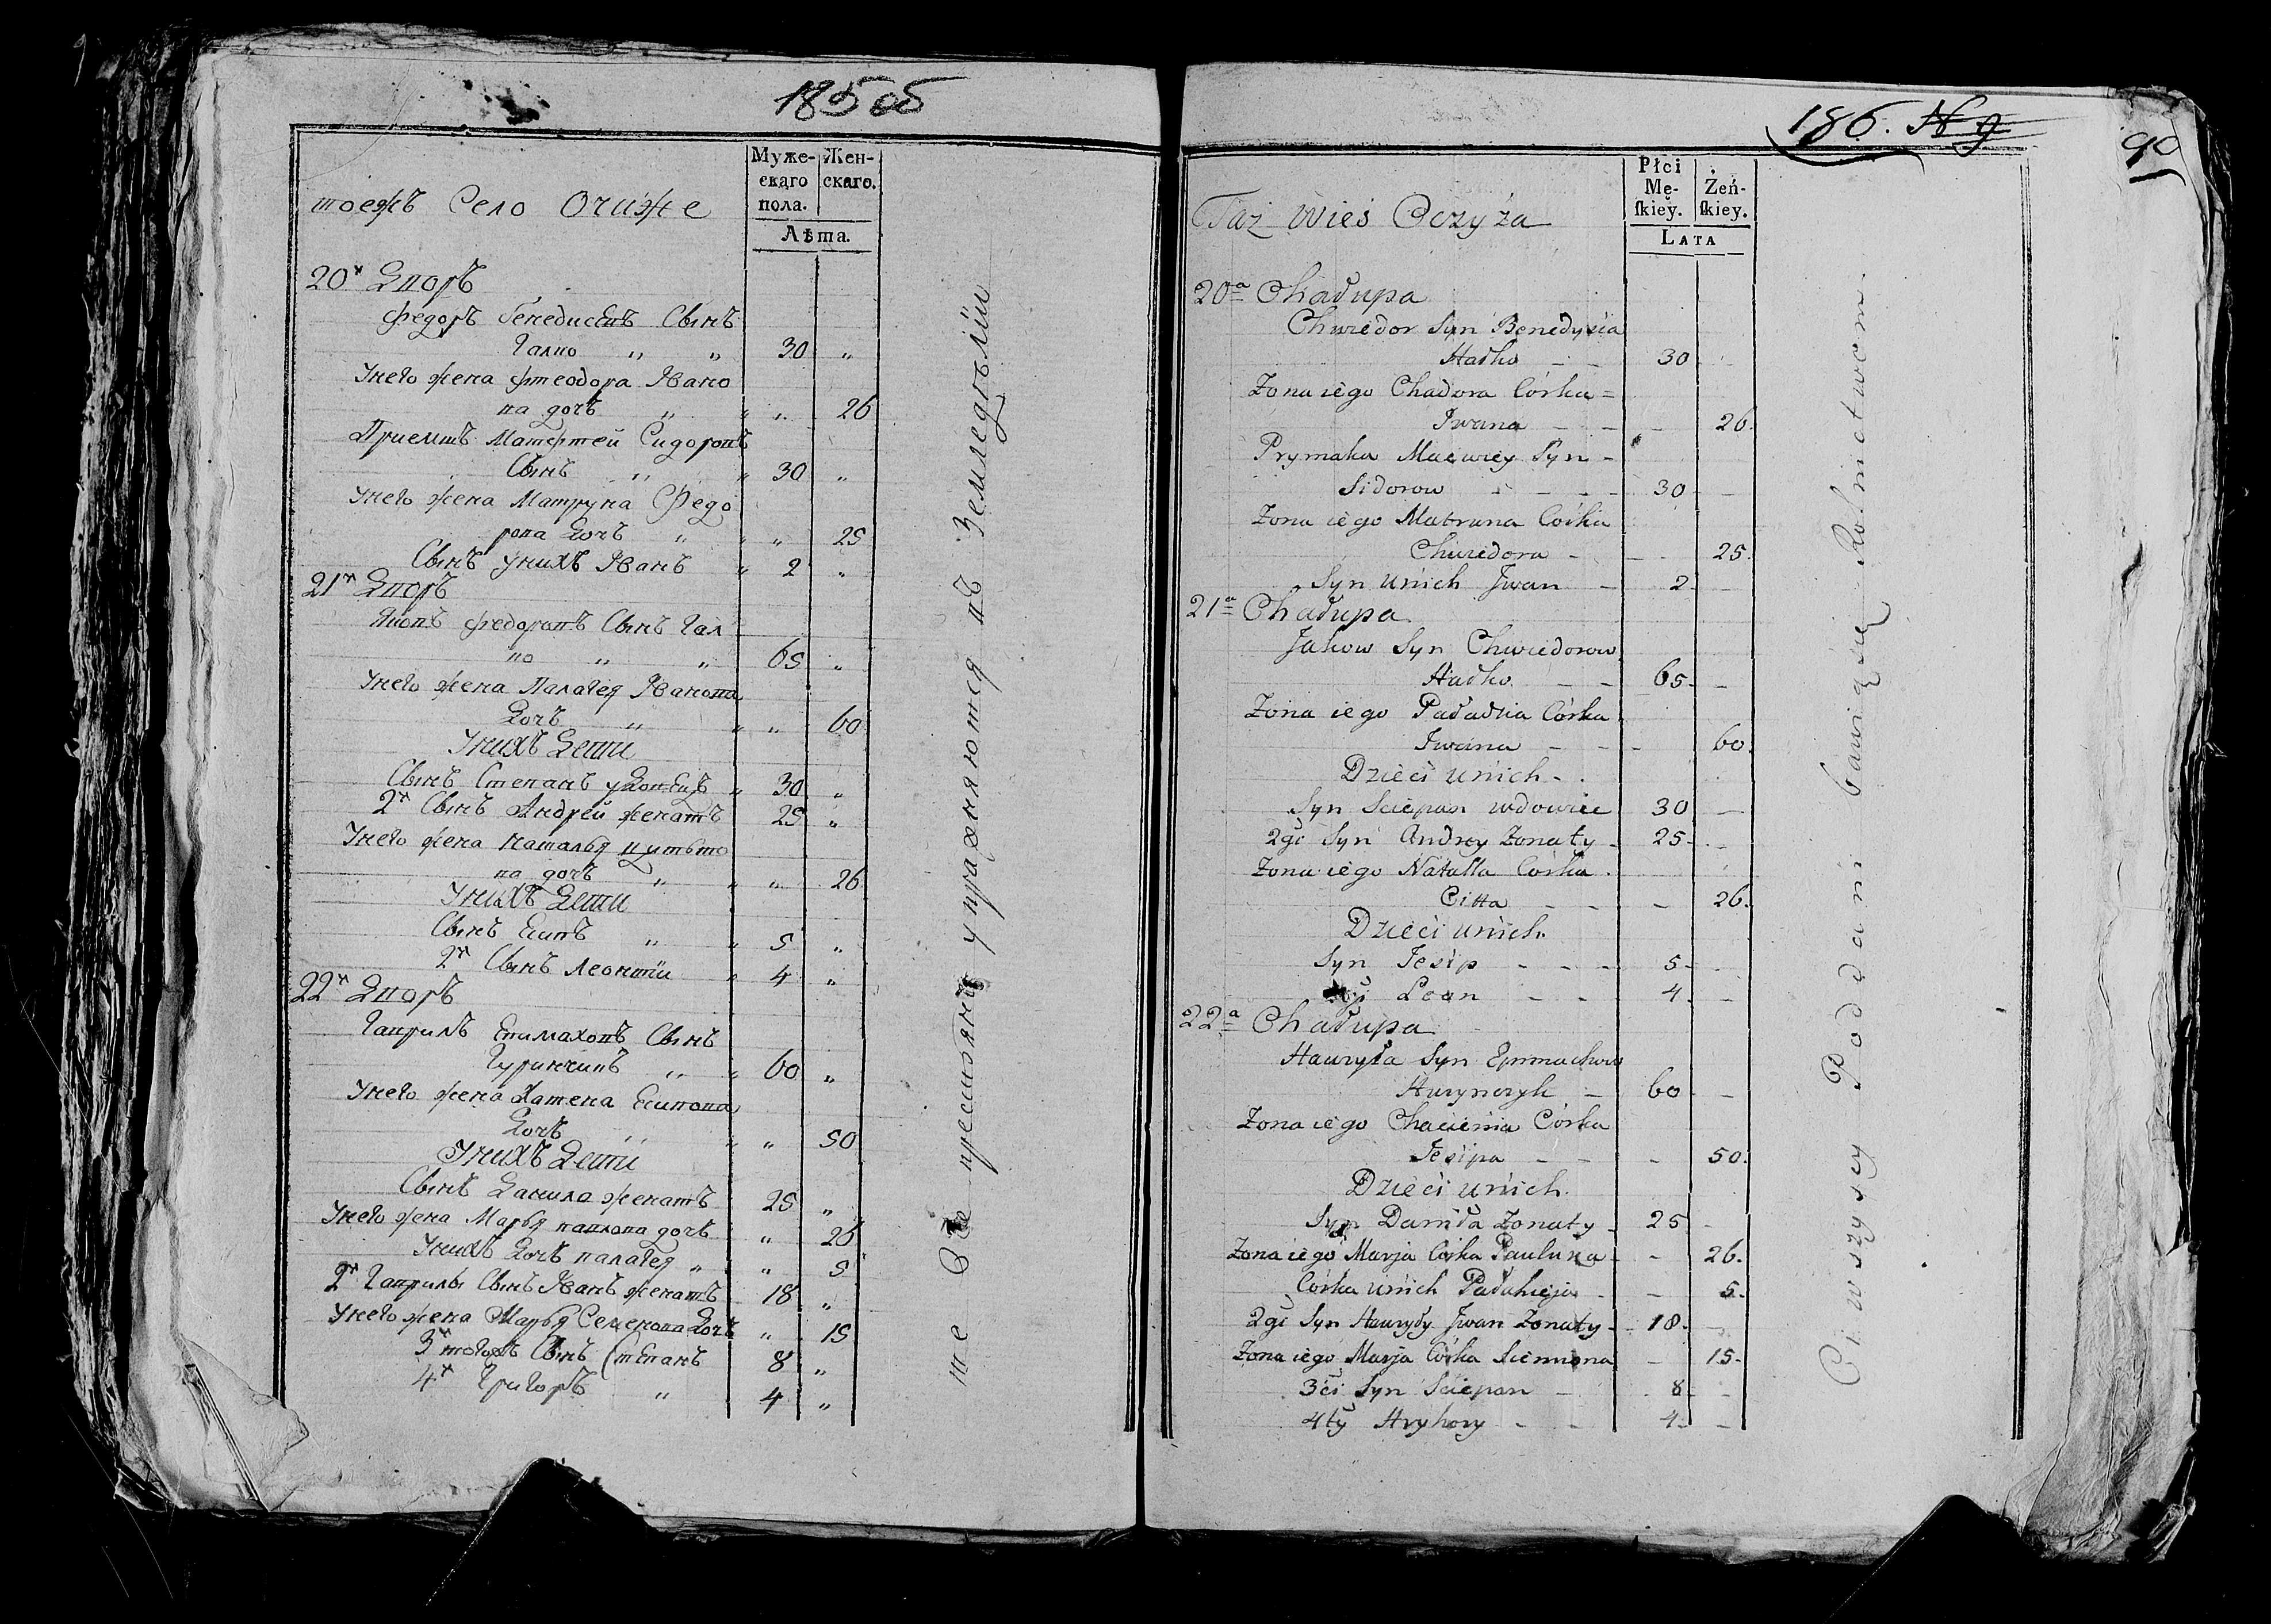 185 об
Муже-
скаго
пола.
Жен-
скаго.
Лѣта.
тоежъ Село Очиже
20ч Дпоръ
Федоръ Бенедистъ Сынъ
Галко " "
30 "
Унего жена Фтеодора Ивано
па дочъ " " "
26
Приемшъ Матфтей Сидоропъ
Сынъ " "
30 "
Унего жена Матруна Федо
ропа Дочъ " " "
25
Сынъ Унихъ Иванъ "
2 "
21ч Дпоръ
Якопъ Федоропъ Сынъ Гал
ко " "
65 "
Унего жена Палагея Иванопа
Дочъ " " "
60
Унихъ Дети
Сынъ Степанъ удопецъ "
30 "
2ч Сынъ Андрей женатъ
25 "
Унего жена Наталья
па дочъ " " "
26
Унихъ Дети
Сынъ Есипъ " "
5 "
2ч Сынъ Леонтїи "
4 "
22ч Дпоръ
Гаприлъ Епимахопъ Сынъ
Гуринчипъ " "
60 "
Унего жена Хатена Есипопа
Дочъ " " "
50
Унихъ Дети
Сынъ Данила женатъ
25 "
Унего жена Марья паплопа дочъ
" 26
Унихъ Дочъ палагея "
" 5
2ч Гаприлы Сынъ Иванъ женатъ
18 "
Унего жена Марья Семенопа Дочъ
" 15
3ч тогожъ Сынъ Степанъ
8 "
4ч Григоръ "
4 "
те Все престьяне упражняются пъ Земледѣлїи
186.
90
Płci
Mę-
skiey.
Żeń-
skiey.
LATA
Taż Wieś Oczyża
20a Chałupa
Chwiedor Syn Benedysia
Hałko - - 30
Żona iego Chadora Córka =
Iwana - - - 26.
Prymaka Maćwiey Syn -
Sidorow - - - 30 -
Żona iego Matruna Córka
Chwiedora - - - 25.
Syn unich Jwan - 2. -
21a Chałupa
Jakow Syn Chwiedorow
Hałko - - 65. -
Żona iego Paładzia Córka
Iwana - - - 60.
Dzieci unich - .
Syn Sciepan wdowiec 30 -
2gi Syn Andrey Żonaty - 25 - -
Żona iego Natalla Córka
Citta - - - 26.
Dzieci unich.
Syn Jesip - - - 5 -
Leon - - 4. -
22a Chałupa
Hauryła Syn Epimachow
Hurynczyk - 60 - -
Żona iego Chacienia Córka
Jesipa - - - 50.
Dzieci unich.
Syn Daniła Żonaty - 25 -
Żona iego Marja Córka Pauluka - - 26.
Córka unich Pałahieja - - 5.
2gi Syn Hauryły Jwan Żonaty - 18. -
Żona iego Marja Córka Siemiona - 15.
3ci Syn Sciepan - 8 -
4ty Hryhory - - 4. -
Ci wszyscy Poddani bawią się Rolnictwem.